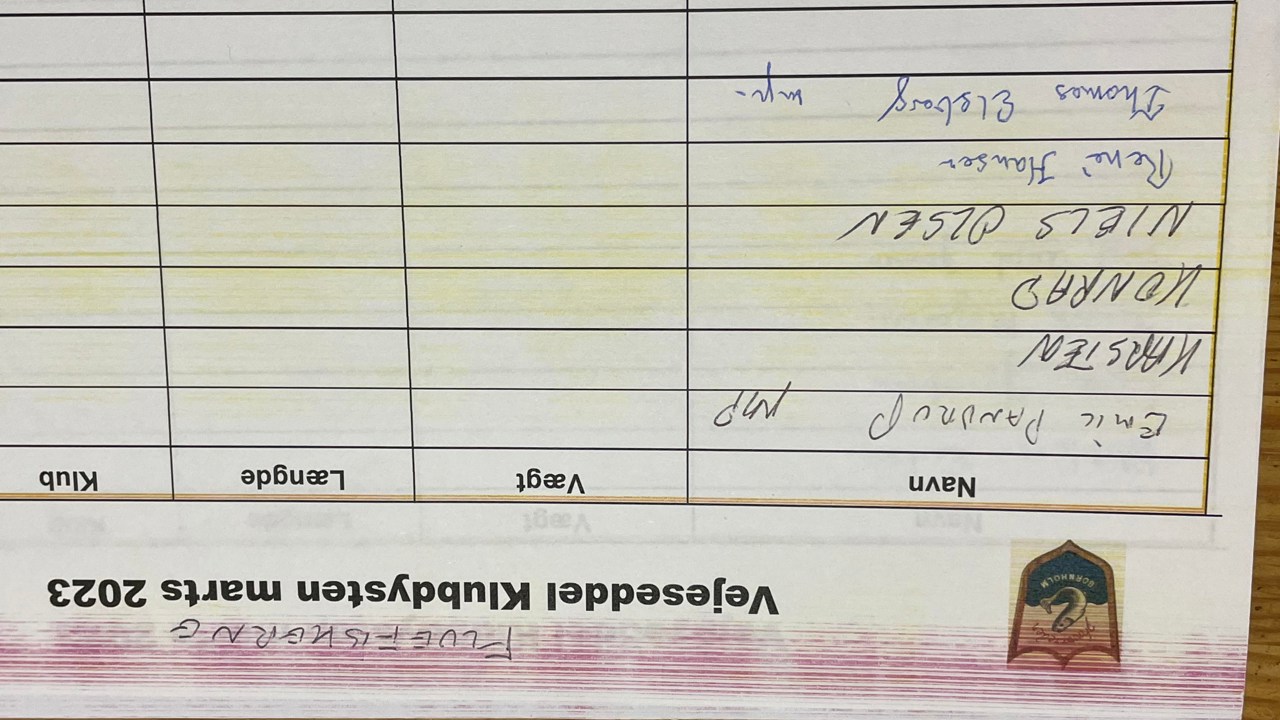 FLUEFISKERNE
Vejeseddel Klubdysten marts 2023
BORNHOLM
Navn Vægt Længde Klub
EMIL PANDRUP MP
KARSTEN
KONRAD
NIELS OLSEN
René Hansen
Thomas Elsborg mp.